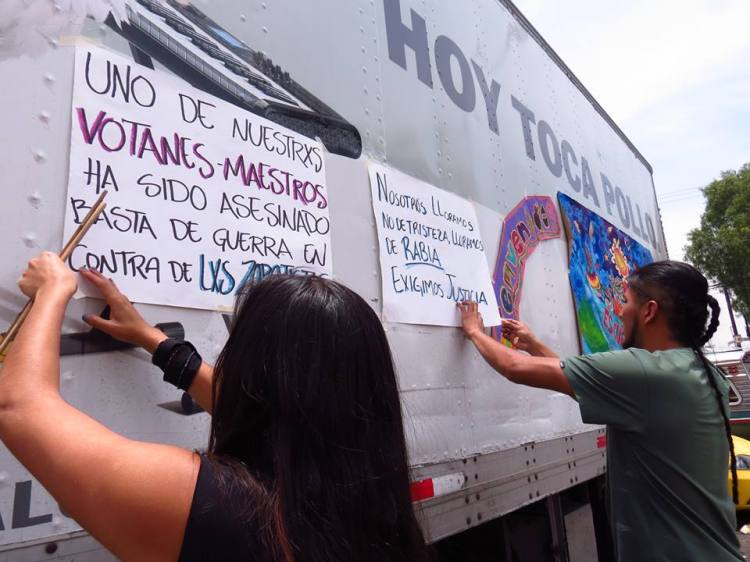 HOY TOCA POLLO
UNO DE NUESTRXS
VOTANES-MAESTROS
HA SIDO ASESINADO
BASTA DE GUERRA EN
CONTRA DE LXS
NOSOTROS LLORAMOS
NO DE TRISTEZA, LLORAMOS
DE RABIA
EXIGIMOS JUSTICIA
AL